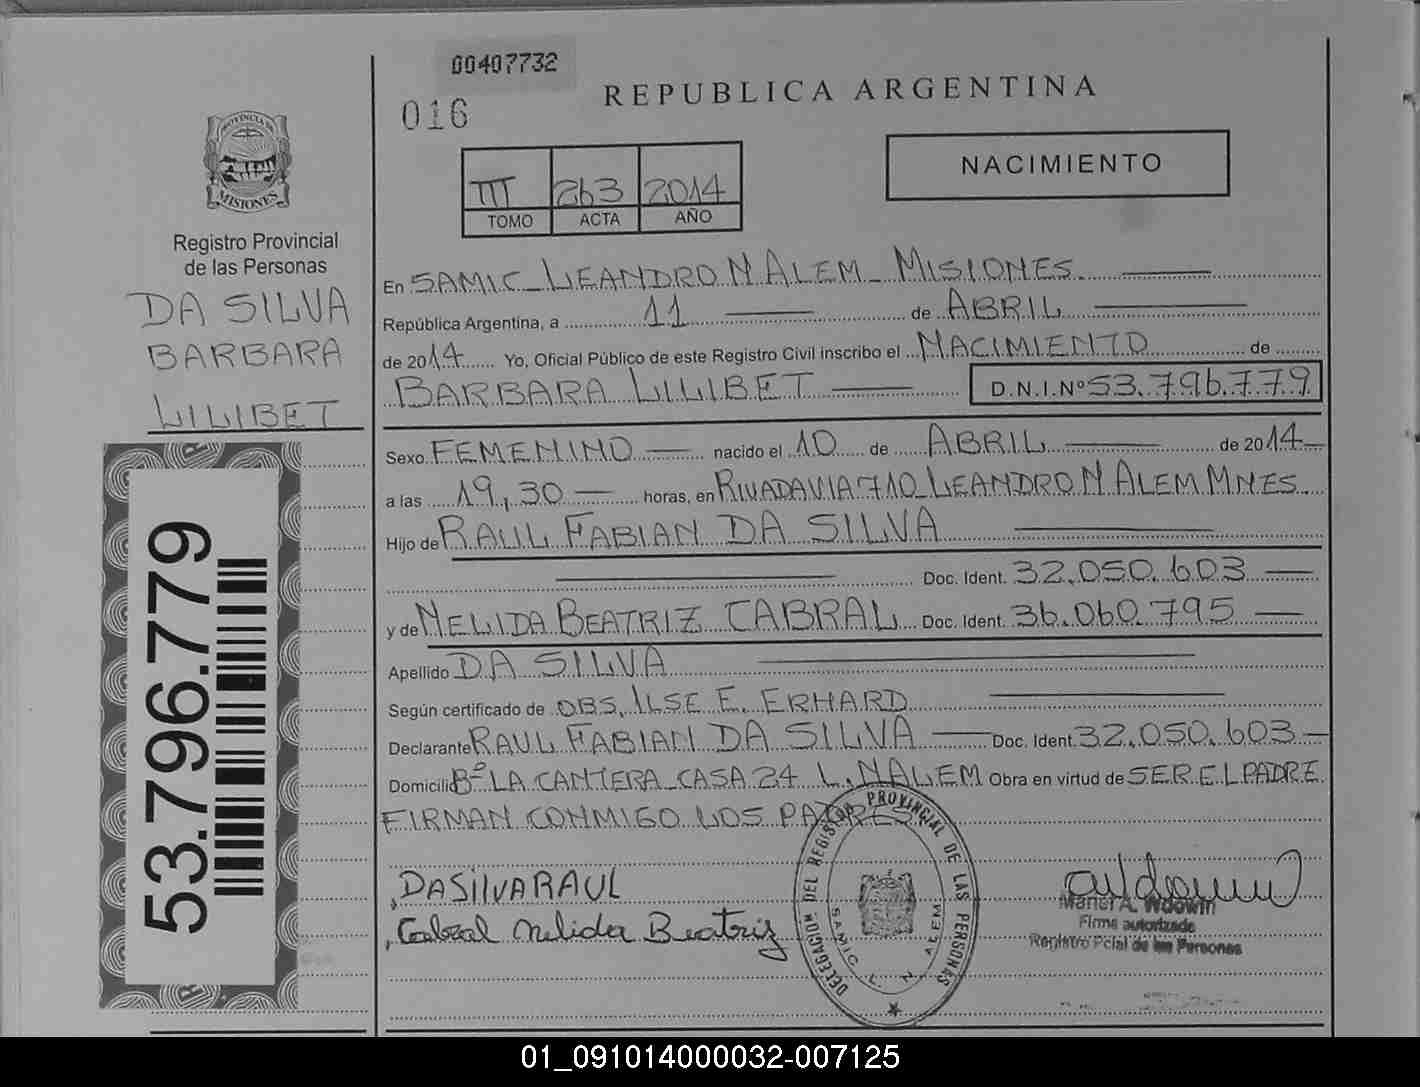 00407732
016
REPUBLICA ARGENTINA
PROVINCIA DE
MISIONES
III 263 2014
TOMO ACTA AÑO
NACIMIENTO
Registro Provincial
de las Personas
DA SILVA
BARBARA
LILIBET
53.796.779
En SAMIC_LEANDRO N ALEM_MISIONES
República Argentina, a 11 de ABRIL
de 2014 Yo, Oficial Público de este Registro Civil inscribo el NACIMIENTO de
BARBARA LILIBET D.N.I.Nº 53.796.779
Sexo FEMENINO nacido el 10 de ABRIL de 2014
a las 19,30 horas, en RIVADAVIA 710_LEANDRO N ALEM MNES
Hijo de RAUL FABIAN DA SILVA
Doc. Ident. 32.050.603
y de NELIDA BEATRIZ CABRAL Doc. Ident. 36.060.795
Apellido DA SILVA
Según certificado de OBS. ILSE E. ERHARD
Declarante RAUL FABIAN DA SILVA Doc. Ident. 32.050.603
Domicilio Bº LA CANTERA_CASA 24 L.N ALEM Obra en virtud de SER EL PADRE
FIRMAN CONMIGO LOS PADRES
DA SILVA RAUL
Cabral Nelida Beatriz
DELEGACION DEL REGISTRO PROVINCIAL DE LAS PERSONAS
SAMIC L. N. ALEM
Mariel A. Wdowin
Firma autorizada
Registro Pcial de las Personas
01_091014000032-007125